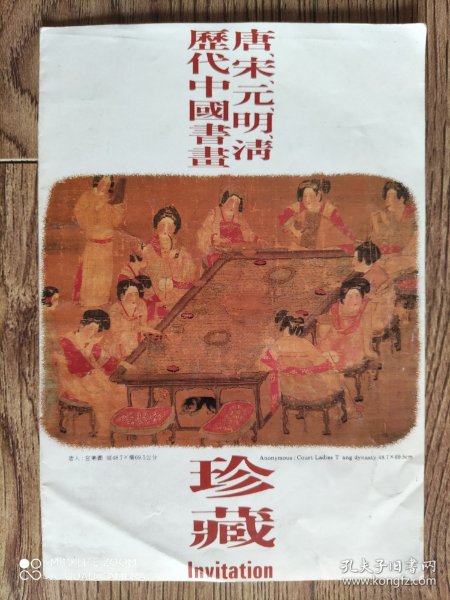 唐、宋、元、明、清
歷代中國書畫
唐人：宮樂圖 縱48.7×橫69.5公分
Anonymous: Court Ladies T ang dynasty 48.7×69.5cm
珍藏
Invitation
孔夫子旧书网
kongfz.com